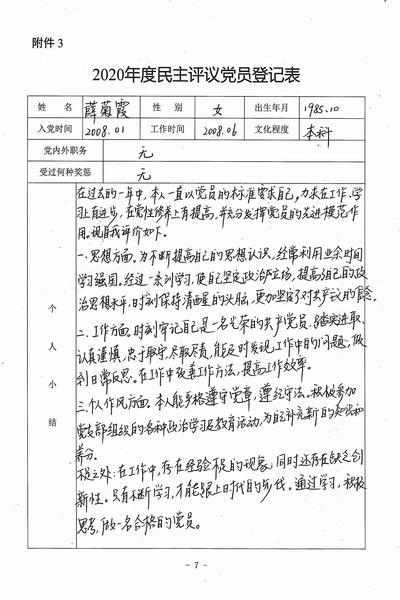 附件3
2020年度民主评议党员登记表
姓 名 薛菊霞 性 别 女 出生年月 1985.10
入党时间 2008.01 工作时间 2008.06 文化程度 本科
党内外职务 无
受过何种奖惩 无
个人小结
在过去的一年中,本人一直以党员的标准要求自己,力求在工作、学
习上有进步,在党性修养上有提高,并充分发挥党员的先进模范作
用。现自我评价如下。
一、思想方面。为不断提高自己的思想认识,经常利用业余时间
学习强国。经过一系列学习,使自己坚定政治立场,提高自己的政
治思想水平,时刻保持清醒的头脑,更加坚定了对共产主义的信念。
二、工作方面。时刻牢记自己是一名光荣的共产党员,踏实进取、
认真谨慎,忠于职守、尽职尽责,能及时发现工作中的问题,做
到日常反思。在工作中改善工作方法,提高工作效率。
三、个人作风方面。本人能严格遵守党章,遵纪守法。积极参加
党支部组织的各种政治学习及教育活动,为自己补充新的
养分。
不足之处:在工作中,存在经验不足的现象,同时还存在缺乏创
新性。只有不断学习,才能跟上时代的步伐。通过学习,积极
思考,做一名合格的党员。
- 7 -